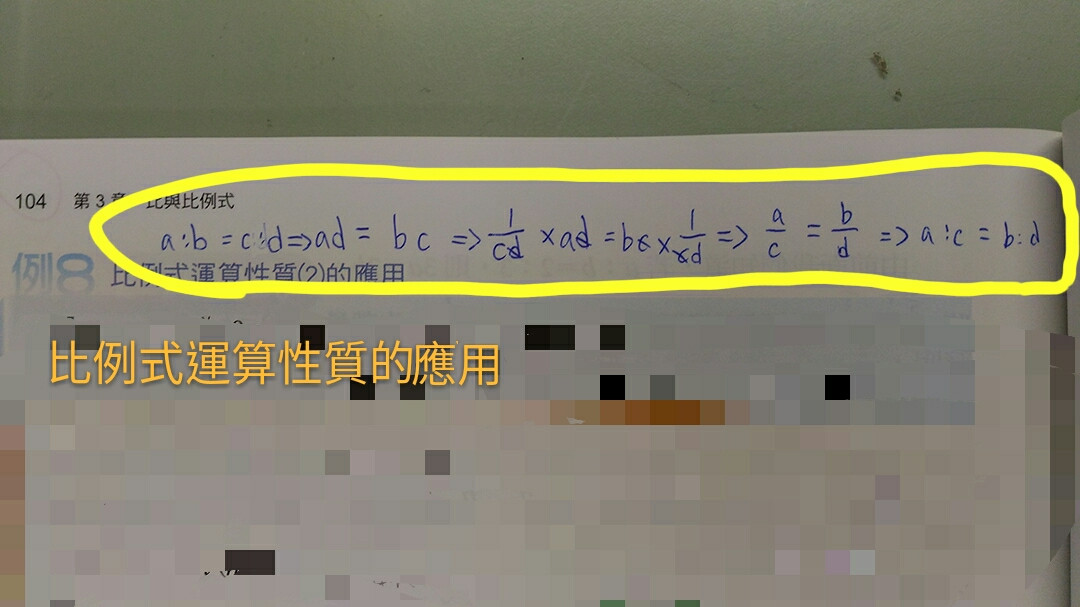 104 第3章 比與比例式
a:b = c:d => ad = bc => 1/cd × ad = bc × 1/cd => a/c = b/d => a:c = b:d
例8 比例式運算性質(2)的應用
比例式運算性質的應用